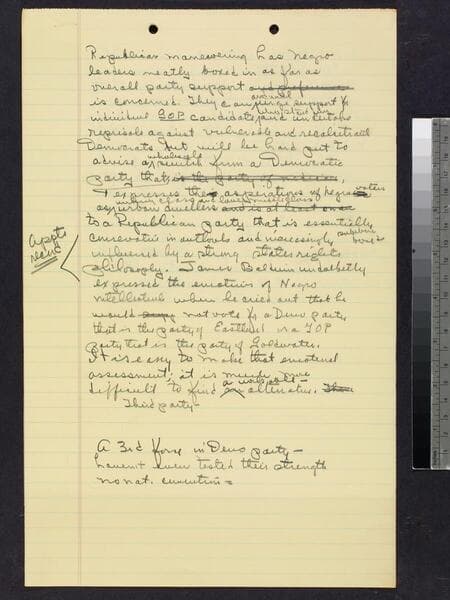 Republican maneuvering has Negro
leaders neatly boxed in as far as
overall party support and preference
is concerned. They can and will urge support for
individual GOP candidates who stand and undertake
reprisals against vulnerable and recalcitrant
Democrats but will be hard put to
advise a wholesale switch from a Democratic
party that is the party of
expresses the aspirations of Negro voters
as urban dwellers and is at least
to a Republican party that is essentially
conservative in outlook and increasingly
influenced by a strong states rights
philosophy. James Baldwin undoubtedly
expressed the emotions of Negro
intellectuals when he cried out that he
would not vote for a Demo party
that is the party of Eastland or a GOP
party that is the party of Goldwater.
It is easy to make that emotional
assessment; it is much more
difficult to find a workable alternative.
Third party—
A 3rd force in Demo party—
haven't even tested their strength
no nat. convention